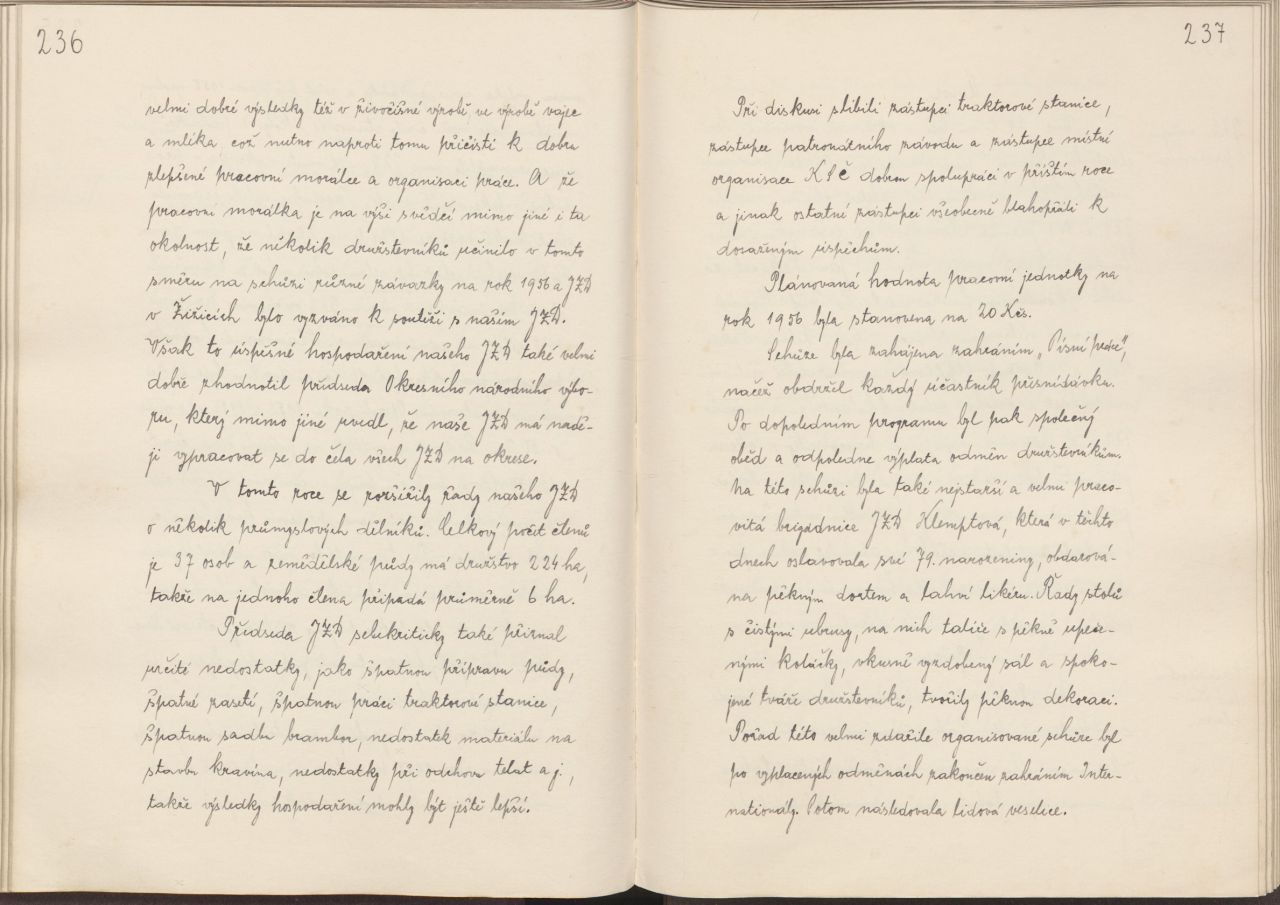 236
velmi dobré výsledky též v živočišné výrobě, ve výrobě vajec
a mléka což nutno naproti tomu přičísti k dobru
zlepšené pracovní morálce a organisaci práce. A že
pracovní morálka je na výši svědčí mimo jiné i ta
okolnost, že několik družstevníků učinilo v tomto
směru na schůzi různé závazky na rok 1956 a JZD
v Žižicích bylo vyzváno k soutěži s naším JZD.
Však to úspěšné hospodaření našeho JZD také velmi
dobře zhodnotil předseda Okresního národního výbo-
ru, který mimo jiné uvedl, že naše JZD má nadě-
ji vypracovat se do čela všech JZD na okrese.
V tomto roce se rozšířily řady našeho JZD
o několik průmyslových dělníků. Celkový počet členů
je 37 osob a zemědělské půdy má družstvo 224 ha,
takže na jednoho člena připadá průměrně 6 ha.
Předseda JZD sebekriticky také přiznal
určité nedostatky, jako špatnou přípravu půdy,
špatné zasetí, špatnou práci traktorové stanice,
špatnou sadbu brambor, nedostatek materiálu na
stavbu kravína, nedostatky při odchovu telat a j.,
takže výsledky hospodaření mohly být ještě lepší.
237
Při diskusi slíbili zástupci traktorové stanice,
zástupce patronátního závodu a zástupce místní
organisace KSČ dobrou spolupráci v příštím roce
a jinak ostatné zástupci všeobecně blahopřáli k
dosaženým úspěchům.
Plánovaná hodnota pracovní jednotky na
rok 1956 byla stanovena na 20 Kčs.
Schůze byla zahájena zahráním „Písní práce",
načež obdržel každý účastník přesnídávku.
Po dopoledním programu byl pak společný
oběd a odpoledne výplata odměn družstevníkům.
Na této schůzi byla také nejstarší a velmi praco-
vitá brigádnice JZD Klemptová, která v těchto
dnech oslavovala své 79. narozeniny, obdarová-
na pěkným dortem a lahví likéru. Řady stolů
s čistými ubrusy, na nich talíře s pěkně upeče-
nými koláčky, vkusně vyzdobený sál a spoko-
jené tváře družstevníků, tvořily pěknou dekoraci.
Pořad této velmi zdařile organisované schůze byl
po vyplacených odměnách zakončen zahráním Inter-
nationály. Potom následovala lidová veselice.